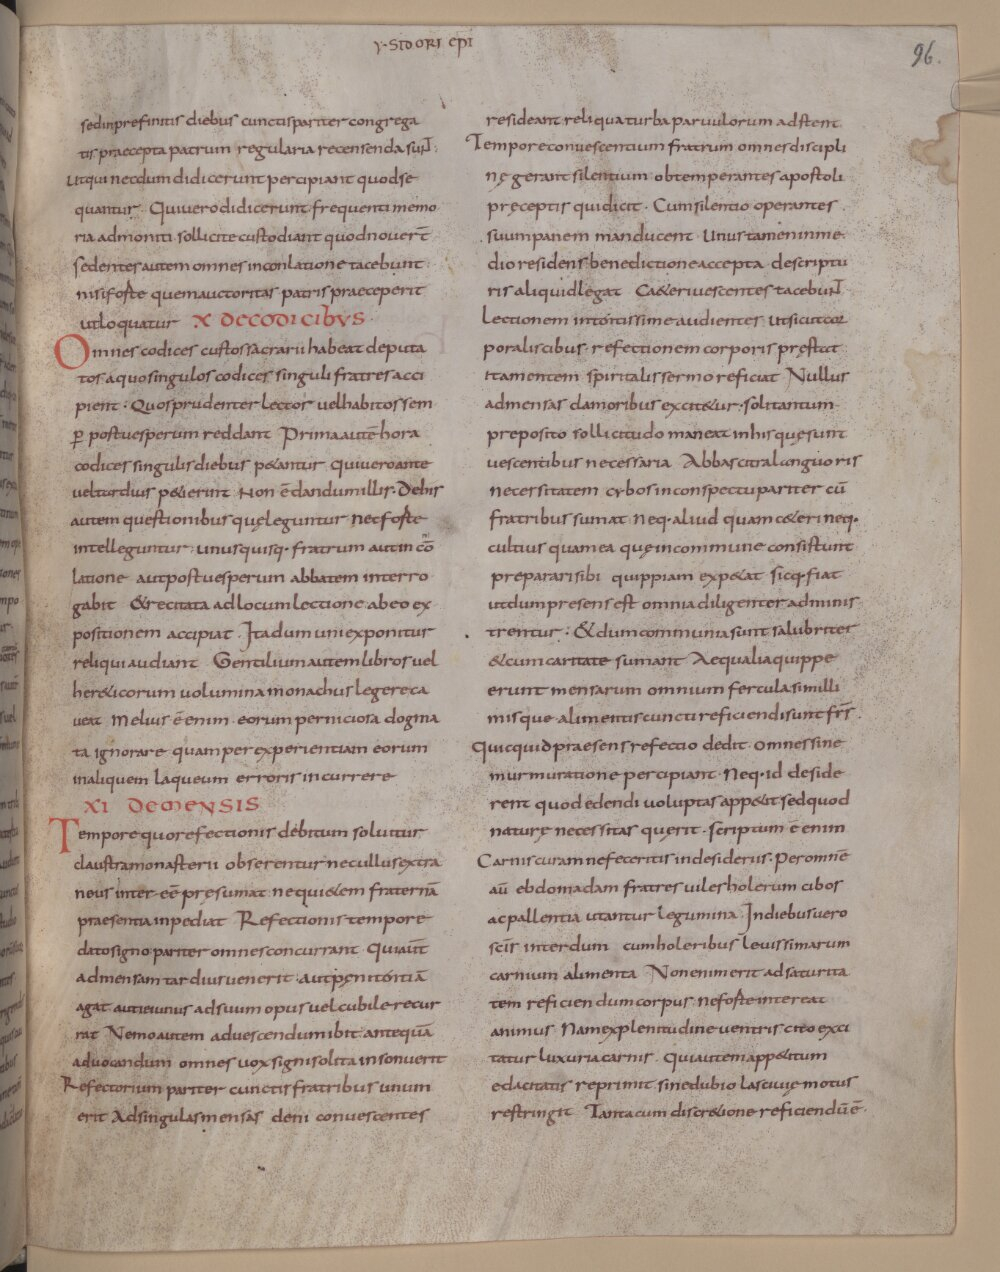 ySIDORI EPI
96.
sed in prefinitis diebus cunctis pariter congrega
tis praecepta patrum regularia recensenda sunt.
Ut qui necdum didicerunt percipiant quod se
quantur. Qui vero didicerunt frequenti memo
ria admoniti sollicite custodiant quod novert̄
sedentes autem omnes in conlatione tacebunt.
nisi foste quem auctoritas patris praeceperit
ut loquatur X DECODICIBVS
Omnes codices custos sacrarii habeat deputa
tos a quo singulos codices singuli fratres acci
pient. Quos prudenter lectos vel habitos sem
ꝑ post vesperum reddant Prima autē hora
codices singulis diebus p&antur qui vero ante
vel tardius p&ierint Non ē dandum illis. Dehis
autem questionibus quę leguntur nec foste
intelleguntur. unusquisq. fratrum aut in cō
latione aut post vesperum abbatem interro
gabit &recitata ad locum lectione ab eo ex
positionem accipiat Ita dum uni exponitur
reliqui audiant Gentilium autem libros vel
her&icorum volumina monachus legere ca
veat Melius ē enim eorum perniciosa dogma
ta ignorare quam per experientiam eorum
in aliquem laqueum erroris incurrere
XI DEMENSIS
Tempore quo refectionis debitum solvitur
claustra monasterii obserentur nec ullus extra
neus inter eē pręsumat ne qui&em fraternā
praesentia inpediat Refectionis tempore
dato signo pariter omnes concurrant Qui aut̄
ad mensam tardius venerit. aut pęnitentiā
agat aut ieiunus ad suum opus vel cubile recur
rat Nemo autem ad vescendum ibit antequā
advocandum omnes vox signi solita insonuerit
Refectorium pariter cunctis fratribus unum
erit Ad singulas mensas deni convescentes
resideant reliqua turba parvulorum adstent
Tempore convescentium fratrum omnes discipli
nę gerant silentium obtemperantes apostoli
pręceptis qui dicit. Cum silentio operantes
suum panem manducent Unus tamen in me
dio residens benedictione accepta de scriptu
ris aliquid legat C&eri vescentes tacebunt
lectionem intentissime audientes ut sicut cor
poralis cibus refectionem corporis prestat
ita mentem spiritalis sermo reficiat Nullus
ad mensas clamoribus excit&ur. soli tantum
preposito sollicitudo maneat in his quę sunt
vescentibus necessaria Abbas citra languoris
necessitatem cybos in conspectu pariter cū
fratribus sumat neq. aliud quam c&eri neq.
cultius quam ea quę in commune consistunt
preparari sibi quippiam exp&at sicq. fiat
ut dum presens est omnia diligenter adminis
trentur. & dum communia sunt salubriter
&cum caritate sumant Aequalia quippe
erunt mensarum omnium fercula simili
misque alimentis cuncti reficiendi sunt frs̄.
Quicquid praesens refectio dedit omnes sine
murmuratione percipiant Neq. id deside
rent quod edendi voluptas app&it sed quod
naturę necessitas quęrit. scriptum ē enim
Carnis curam ne feceritis in desideriis. Per omnē
aū ebdomadam fratres viles holerum cibos
ac pallentia utantur legumina. In diebus vero
sc̄is interdum cum holeribus levissimarum
carnium alimenta Non enim erit ad saturita
tem reficiendum corpus ne foste intereat
animus Nam ex plenitudine ventris cito exci
tatur luxuria carnis. Qui autem app&itum
edacitatis reprimit sine dubio lasciuię motus
restringit Tanta cum discr&ione reficiendū ē.